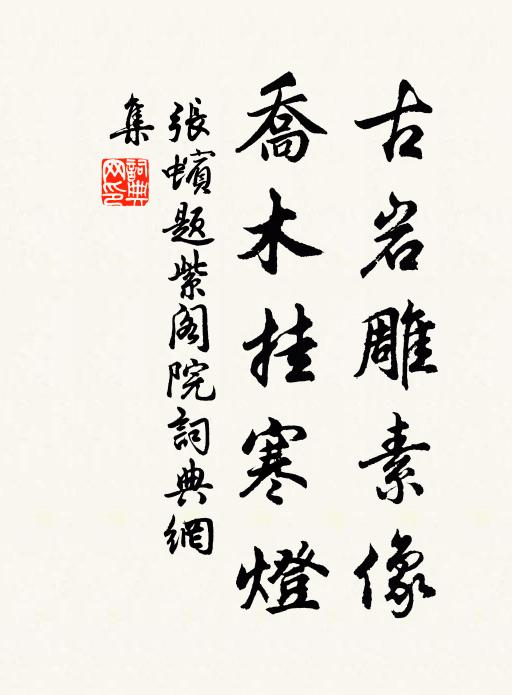 古岩雕素像
喬木挂寒燈
張蠙題紫阁院詞典網
集
詞典
网印